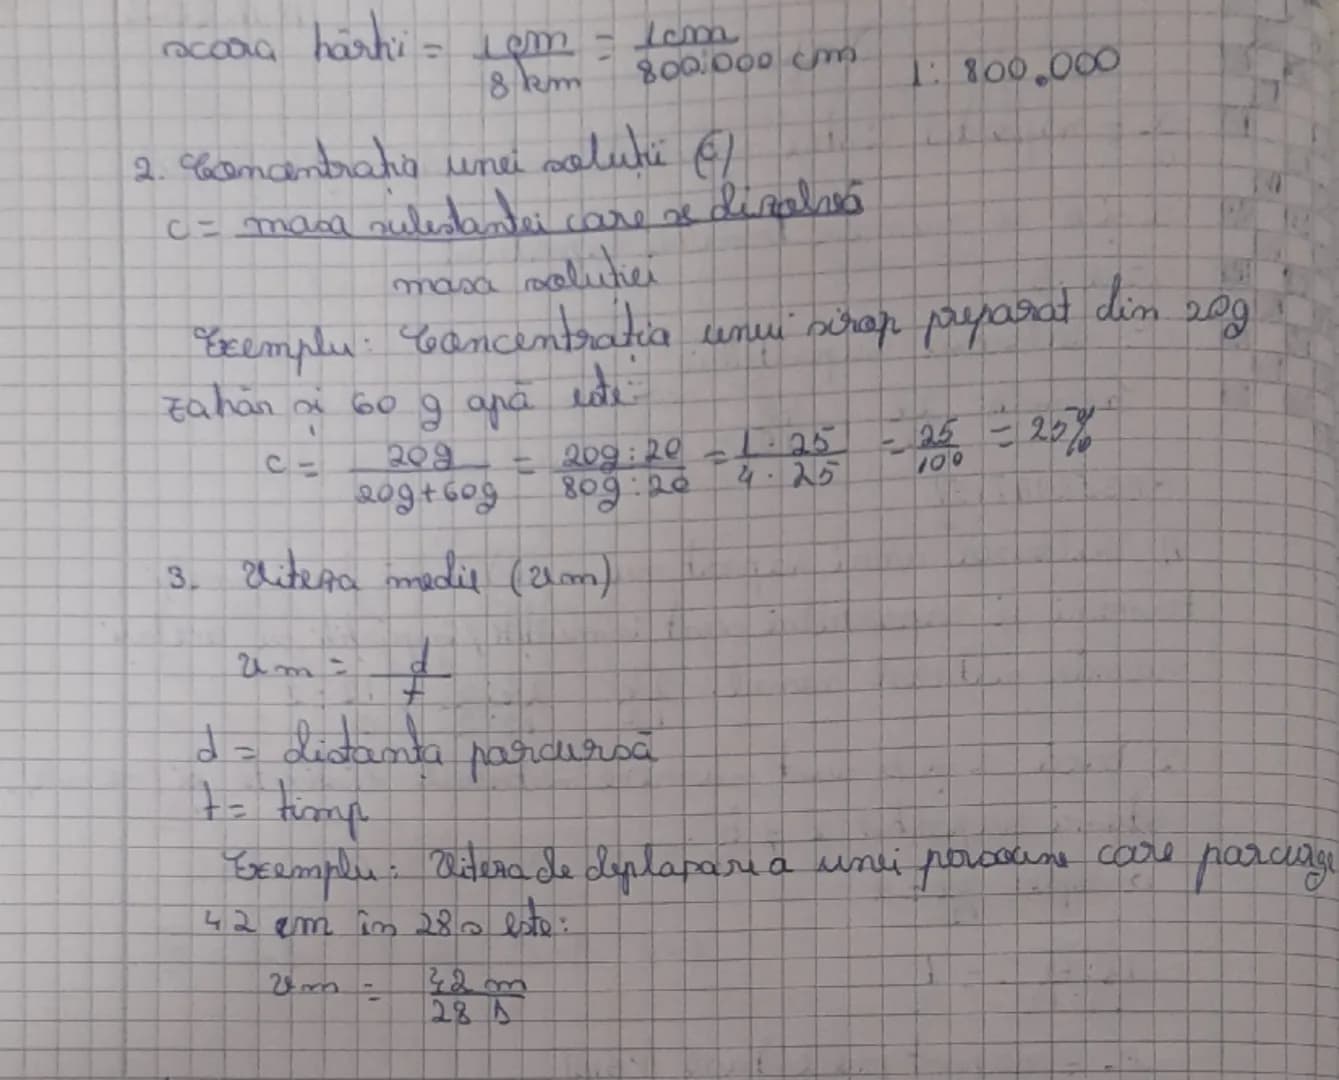 scara hărții = 1cm / 8 km = 1cm / 800.000 cm 1: 800.000
2. Concentrația unei soluții (c)
c = masa substanței care se dizolvă
masa soluției
Exemplu: Concentrația unui sirop preparat din 20g
zahăr și 60 g apă este:
c = 20g / 20g+60g = 20g:20 / 80g:20 = 1·25 / 4·25 = 25 / 100 = 25%
3. Viteza medie (vm)
vm = d / t
d = distanța parcursă
t = timp
Exemplu: Viteza de deplasare a unei persoane care parcurge
42 m în 28 s este:
vm = 42 m / 28 s